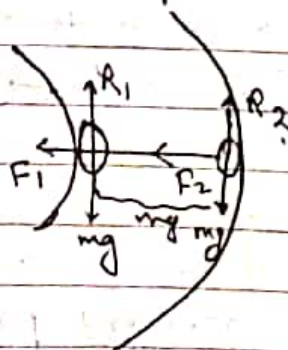 R₁
R₂
F₁
F₂
mg
mg
mg